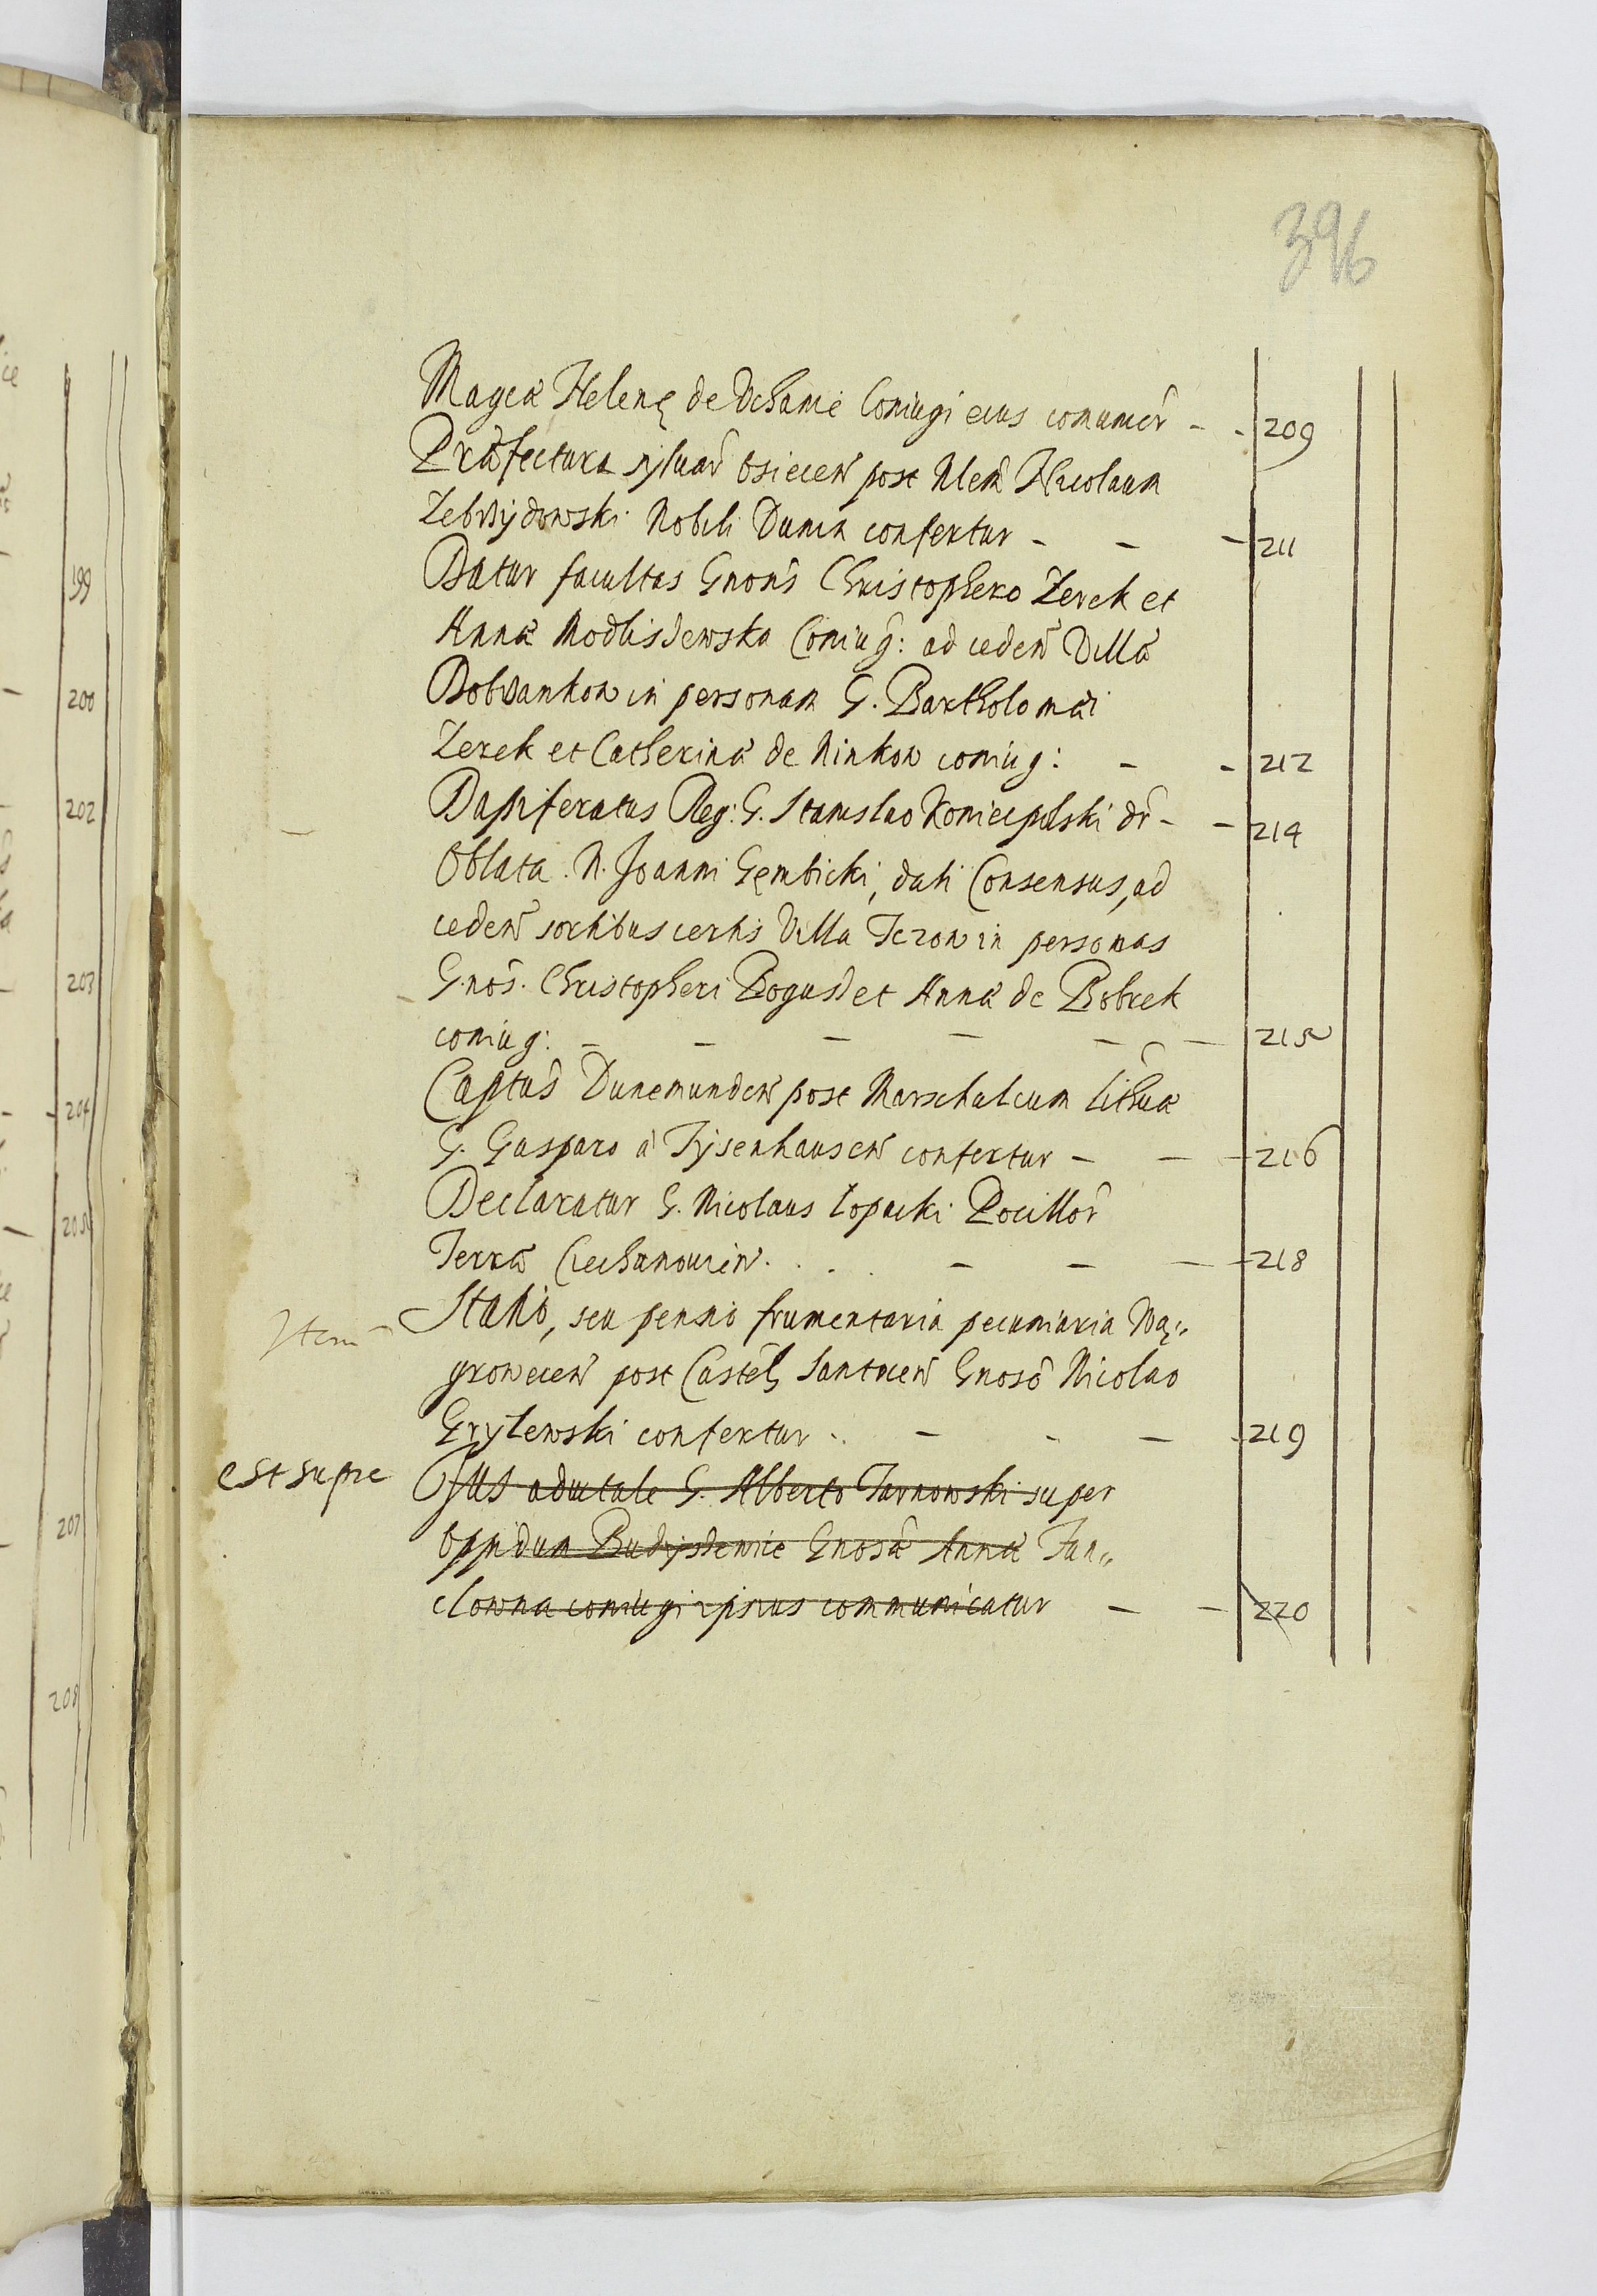 396
Magcæ Helenę de Uchanie Coniugi eius comunicr̃ - - 209
Præfectura syluar̃ Osiecen̄ post Mlem̃ Nicolaum
Zebrzydowski Nobili Dunin confertur - - - 211
Datur facultas Gnosis Christophero Zerek et
Annæ Modlisȝewska Coniug: ad ceden̄ Villa
Bobrankow in personam G. Bartholomæi
Zerek et Catherinæ de Minkow coniug: - - 212
Dapiferatus Reg: G. Stanislao Koniecpolski dr̃ - - 214
Oblata. N. Joanni Gembicki, dati Consensus, ad
ceden̄ sortibus certis Villa Jezow in personas
G.nos. Christopheri Bogusȝ et Annæ de Bobrek
coniug: - - - - - - 215
Captus Dunemunden̄ post Marschalcum Lithuæ
G. Gasparo à Tysenhausen̄ confertur - - - 216
Declaratur G. Nicolaus Lopacki Pocillor̃
Terræ Ciechanouien̄ . . . - - - 218
Item Statio, seu pensio frumentaria pecuniaria Wą„
growecen̄ post Castel Santocen̄ Gnoso Nicolao
Gryzewski confertur . . - - - - 219
est supre Jus aduitale G. Alberto Tarnowski super
Oppidum Budzysȝewice Gnosæ Annæ Fan„
clowna coniugi ipsius communicatur - - 220
199
200
202
203
204
205
207
208